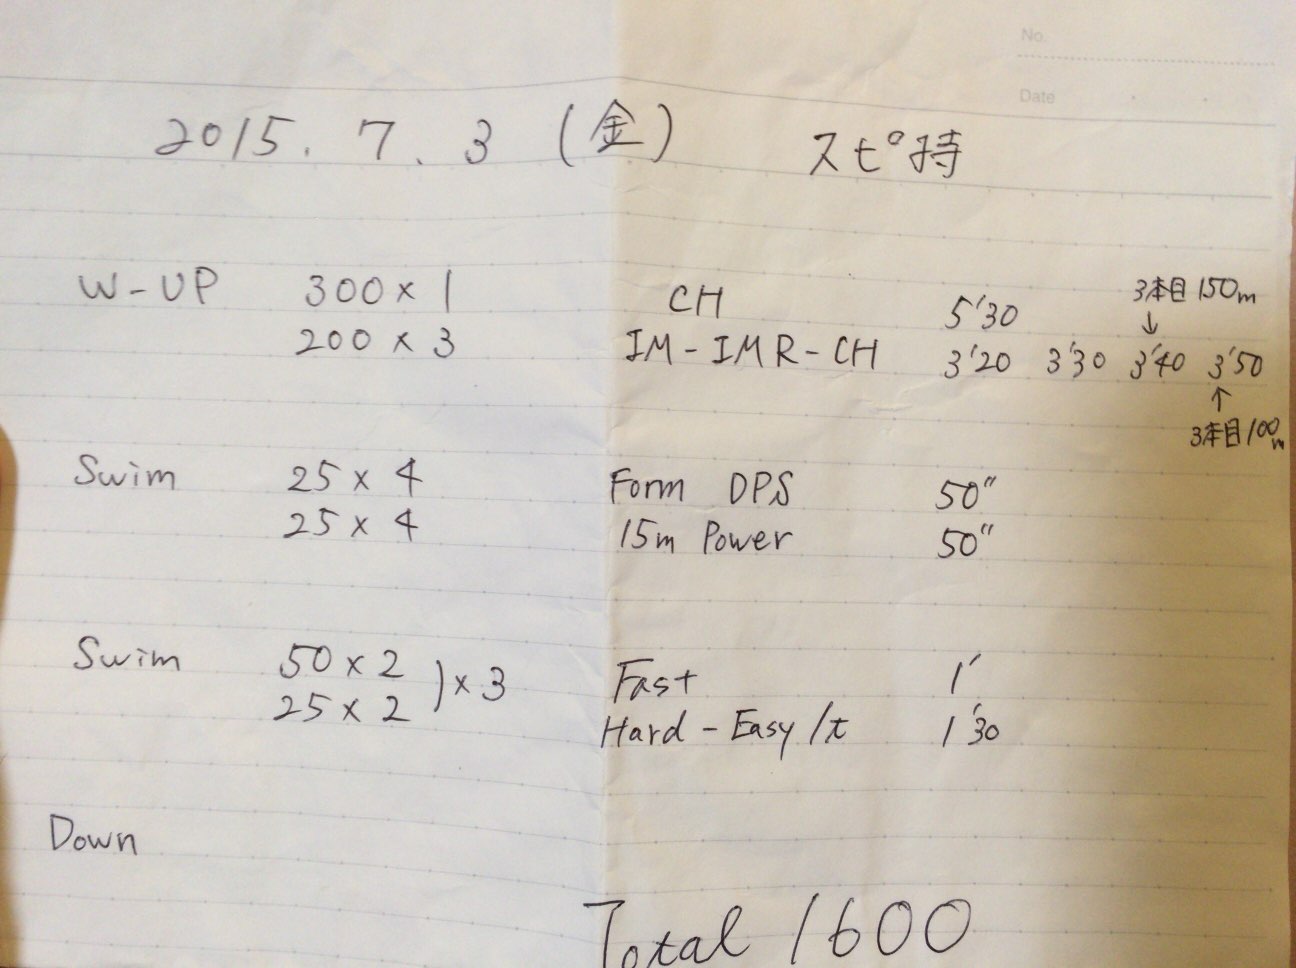 No.
Date
2015. 7. 3 (金) スピ持
3本目 150m
↓
W-UP 300×1 CH 5'30
200×3 IM-IMR-CH 3'20 3'30 3'40 3'50
↑
3本目100m
Swim 25×4 Form DPS 50"
25×4 15m Power 50"
Swim 50×2 )×3 Fast 1'
25×2 Hard-Easy/t 1'30
Down
Total 1600